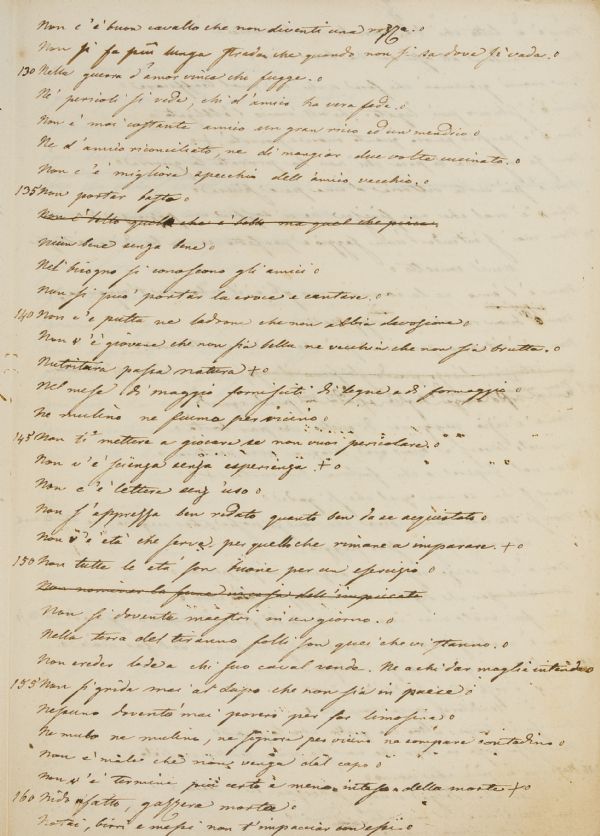 Non c'è buon cavallo che non diventi una rozza. o
Non si fa più lunga strada, che quando non si sa dove si vada. o
130 Nella guerra d'amor vince chi fugge. o
Nè pericoli si vede, chi d'amico ha vera fede. o
Non è mai costante amico un gran ricco ed un mendico o
Ne d'amico riconciliato, ne di mangiar due volte cucinato. o
Non c'è migliore specchio dell'amico vecchio. o
135 Non portar basto o
Non è bello quel che è bello ma quel che piace.
Niun bene senza pene o
Nel bisogno si conoscono gli amici o
Non si può portar la croce e cantare. o
140 Non c'è putta ne ladrone che non abbia devozione o
Non v'è giovane che non sia bella ne vecchia che non sia brutta. o
Nutritura passa natura + o
Nel mese di maggio fornisciti di legne e di formaggio o
Ne mulino ne fiume per vicino o
145 Non ti mettere a giocare se non vuoi pericolare. o
Non v'è scienza senza esperienza. + o
Non c'è lettera senz'uso o
Non s'apprezza ben redato quanto ben da se acquistato o
Non v'è età che serva, per quello che rimane a imparare. + o
150 Non tutte le età son buone per un esercizio o
Non nominar la fune in casa dell'impiccato
Non si doventa maestri in un giorno. o
Nella terra del tiranno folli son quei che vi stanno. o
Non creder lode a chi suo caval vende. Ne a chi dar moglie intende o
155 Non si grida mai al lupo che non sia in paese o
Nessuno doventò mai povero per far limosina o
Ne mulo ne mulino, ne signore per vicino ne compare contadino o
Non è male che non venga dal capo o
Non v'è termine più certo e meno inteso della morte + o
160 Nido fatto, gazzera morta o
Notai, birri e messi non t'impacciar con essi. o